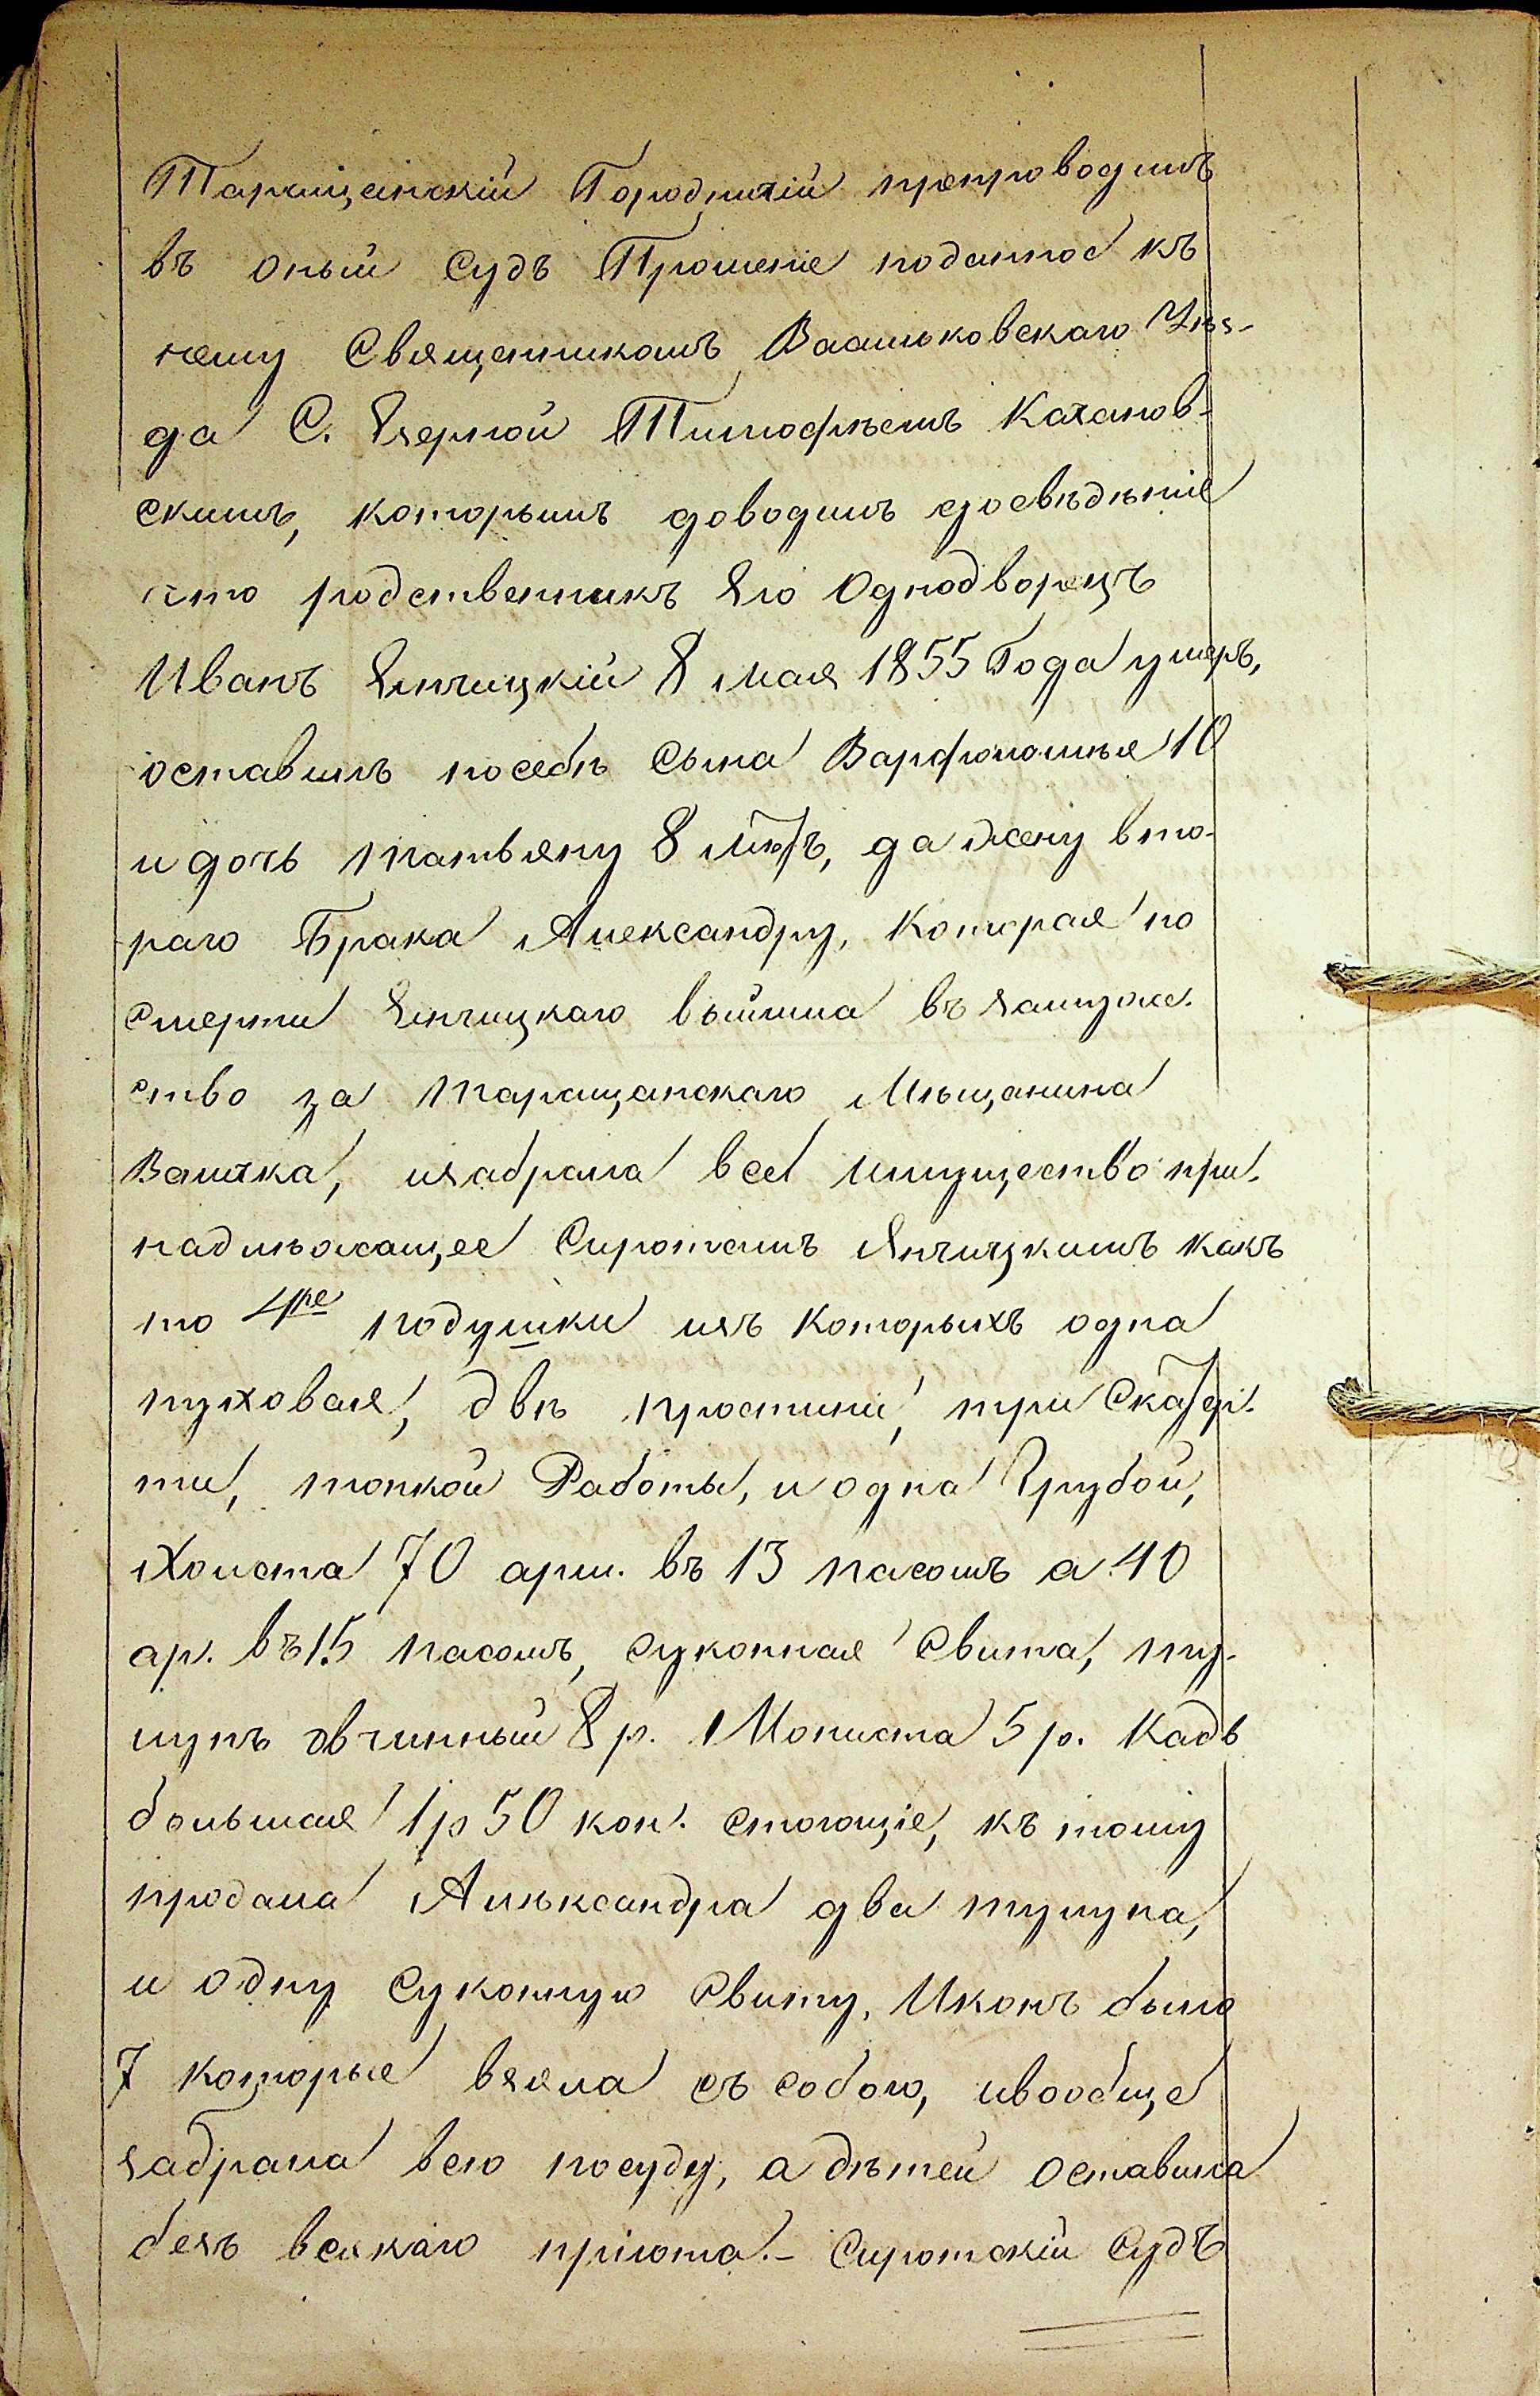 Таращанскій Городничій препроводилъ
въ оный Судъ Прошеніе поданное къ
нему Священникомъ Васильковскаго Уѣз-
да С. Езерной Тимофѣемъ Качанов-
скимъ, которымъ доводитъ досвѣдѣніе
что родственникъ Его Однодворецъ
Иванъ Янчицкій 8 мая 1855 Года умеръ,
оставилъ посебѣ Сына Варфоломѣя 10
и дочь Татьяну 8 лѣтъ, да жену вто-
раго Брака Александру, Которая по
Смерти Янчицкаго выйшла въ замуже-
ство за Таращанскаго Мѣщанина
изабрала всё имущество при-
надлѣжащее Сиротамъ Янчицкимъ какъ
то 4ре подушки изъ Которыхъ одна
пуховая, двѣ простини, три Скатер-
ти, тонкой Работы, и одна Грубой,
Холста 70 арш. въ 13 пасомъ а 40
ар. въ 15 пасомъ, Суконная Свита, ту-
лупъ овчинный 8 р. Мониста 5 р. Кадь
большая 1 р 50 коп. Стоющіе, къ тому
продала Алѣксандра два тулупа,
и одну Суконную Свиту, Иконъ было
7 Которые взяла съ собою, ивообще
забрала всю посуду, а дѣтей Оставила
безъ всякаго пріюта. - Сиротскій Судъ